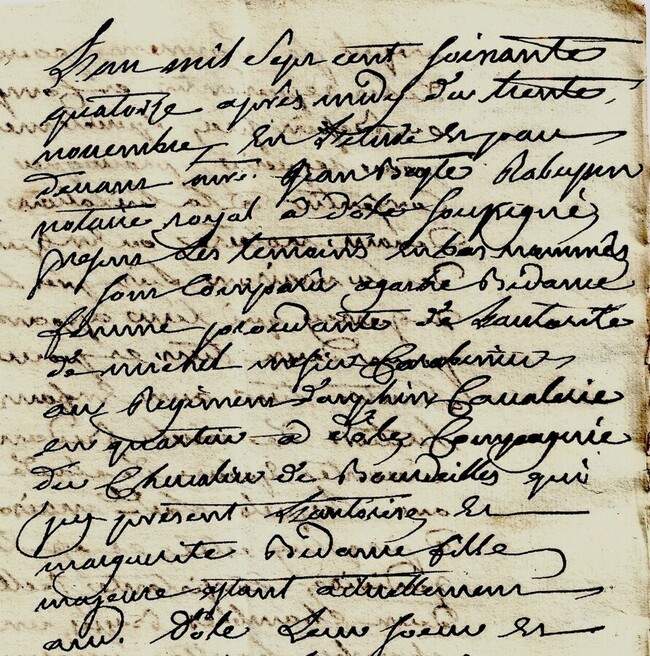 L'an mil sept cent soixante
quatorze après midy du trente
novembre en l'étude et par
devant nre. Jean Bapte Rabusson
notaire royal à dole soussigné
présens les temoins enbas nommés
sont comparü agathe Bidame
femme procedante de Lautorité
de michel Carabinier
au Regiment dauphin Cavalerie
en quartier à dole Compagnie
du Chevalier de Bourdeilles qui
cy présent Lautorise Et
marguerite Bidame fille
majeure etant actuellement
aud. dole Leur soeur Et